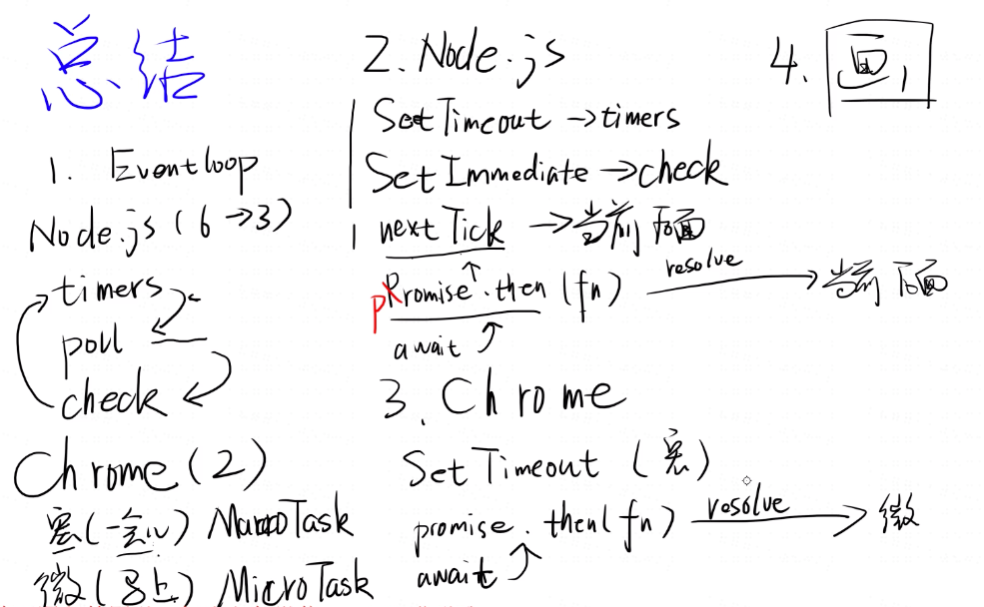 总结
1. Eventloop
Node.js (6→3)
timers
poll
check
Chrome (2)
宏(一会儿) MacroTask
微(马上) MicroTask
2. Node.js
SetTimeout → timers
SetImmediate → check
nextTick → 当前 后面
promise.then (fn) resolve → 当前 后面
await
3. Chrome
SetTimeout (宏)
promise.then(fn) resolve → 微
await
4. 画